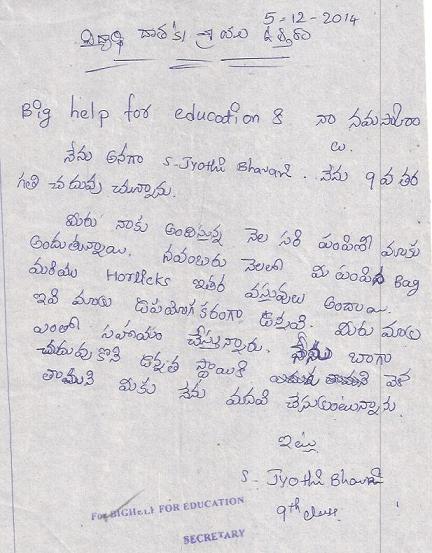 5-12-2014
విద్యార్థి దాతకు శ్రయు
Big help for education కి నా నమస్కారా
లు.
నేను అనగా S-Jyothi Bhavani. నేను 9 వ తర
గతి చదువు చున్నాను.
మీరు నాకు అందిస్తున్న నెల సరి పంపిణి మాకు
అందుతున్నాయి. నవంబరు నెలలో మీ పంపిన Bag
మరియు Horlicks ఇతర వస్తువులు అందాయి.
ఇవి మాకు ఉపయోగకరంగా ఉన్నవి. మీరు మాకు
ఎంతో సహాయం చేస్తున్నారు. నేను బాగా
చదువుకొని ఉన్నత స్థాయికి వెళ
తామని మీకు నేను మనవి చేసుకుంటున్నాను.
ఇట్లు
S- Jyothi Bhavani
9th class.
For BIGHELP FOR EDUCATION
SECRETARY